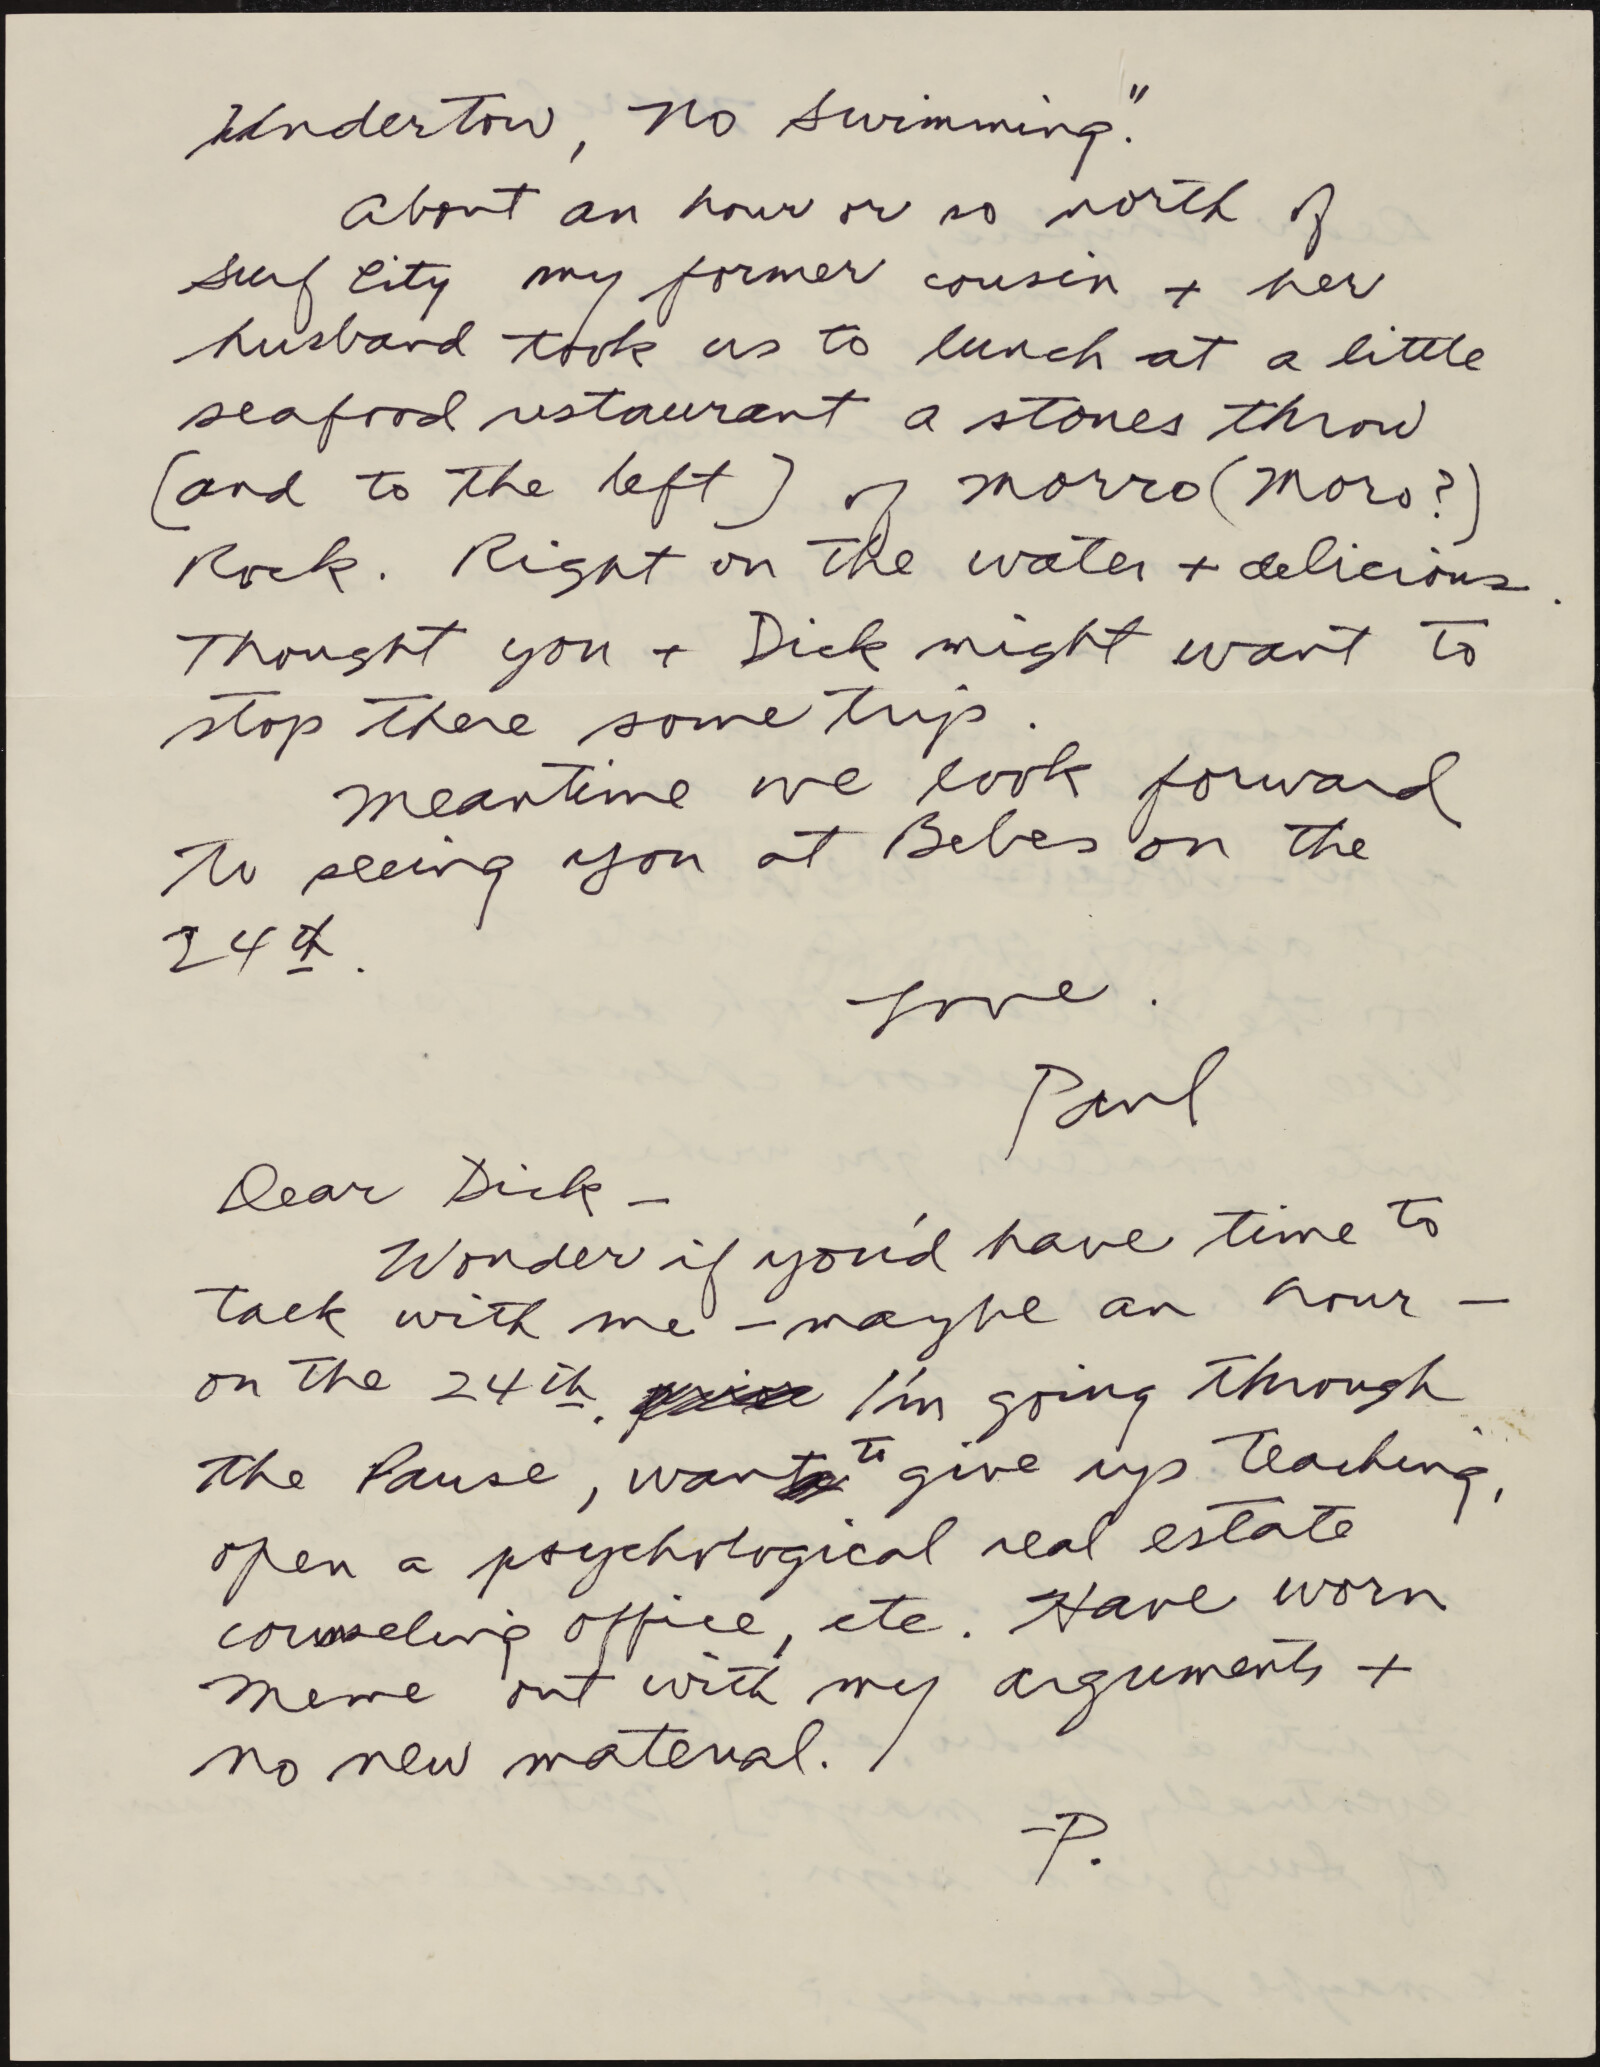 Undertow, No Swimming."
About an hour or so north of
Surf City my former cousin + her
husband took us to lunch at a little
seafood restaurant a stones throw
(and to the left) of Morro (Moro?)
Rock. Right on the water + delicious.
Thought you + Dick might want to
stop there some trip.
Meantime we look forward
to seeing you at Bebes on the
24th.
Love.
Paul
Dear Dick —
Wonder if you'd have time to
talk with me — maybe an hour —
on the 24th. I'm going through
the Pause, want to give up teaching,
open a psychological real estate
counseling office, etc. Have worn
Meme out with my arguments +
no new material.
—P.